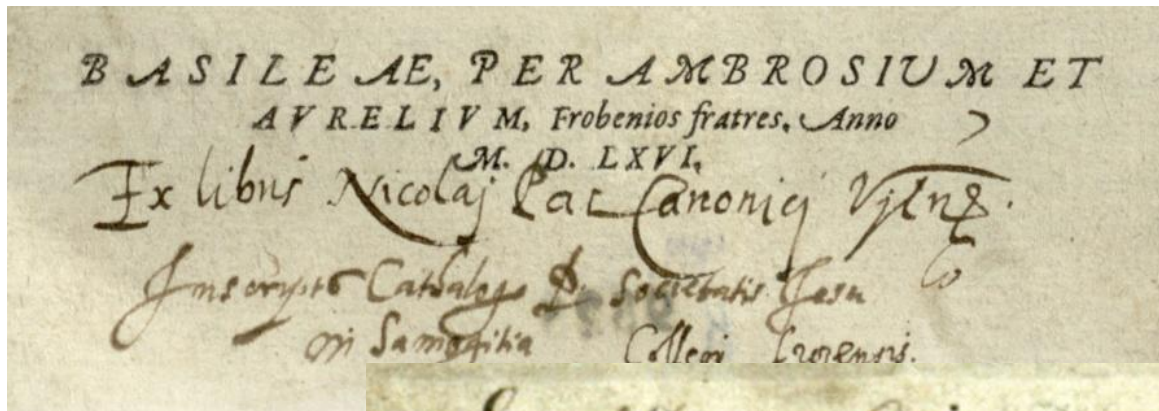 BASILEAE, PER AMBROSIUM ET
AVRELIVM, Frobenios fratres. Anno
M. D. LXVI.
Ex libris Nicolaj Pac Canonici
Inscripto Cathalogo Societatis Jesu
in Samogitia Collegi